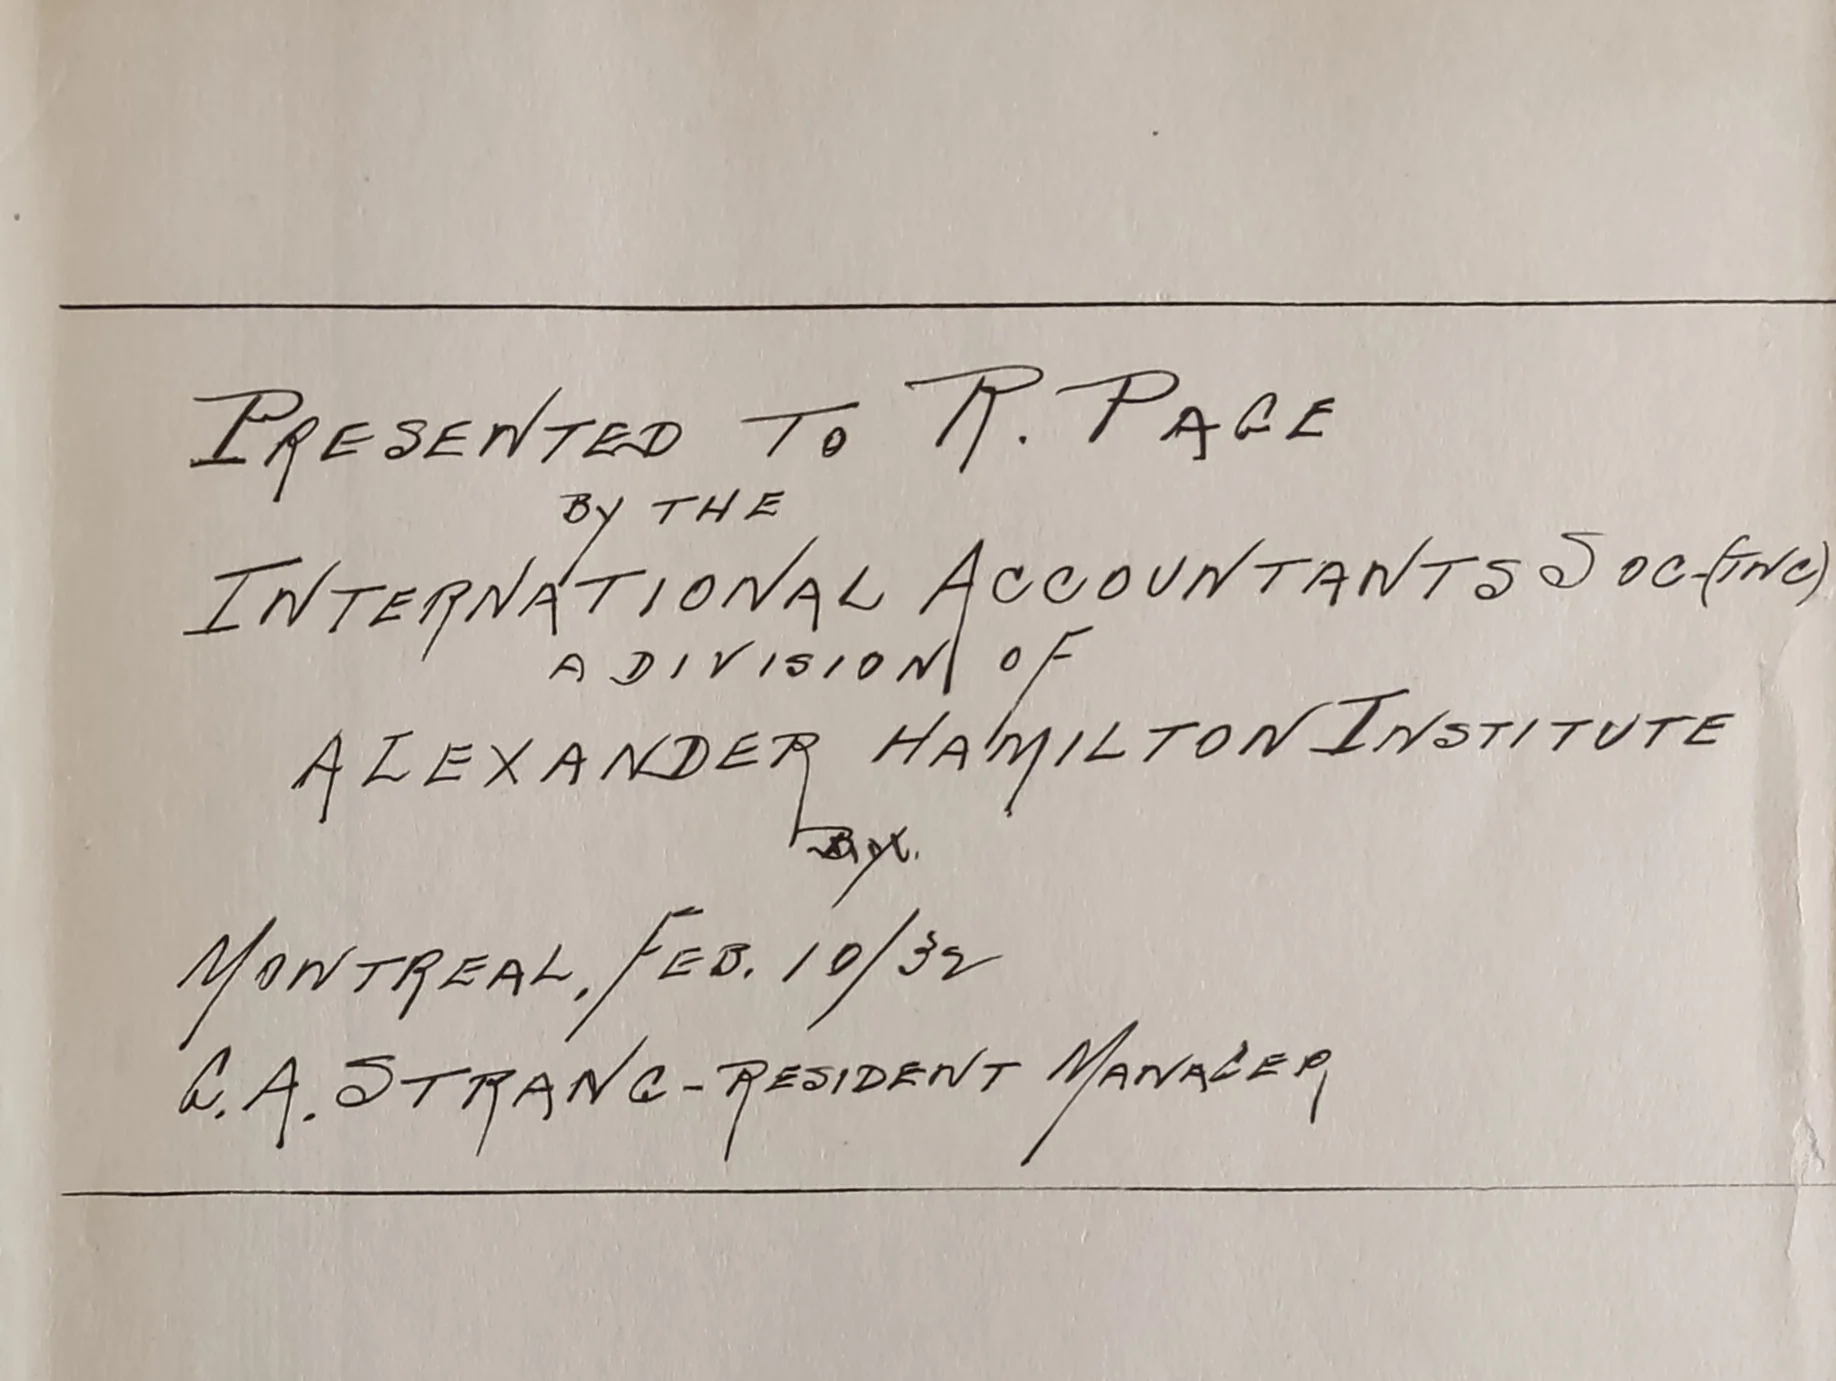 PRESENTED TO R. PAGE
BY THE
INTERNATIONAL ACCOUNTANTS SOC-(INC)
A DIVISION OF
ALEXANDER HAMILTON INSTITUTE
BY.
MONTREAL, FEB. 10/32
G.A. STRANG-RESIDENT MANAGER